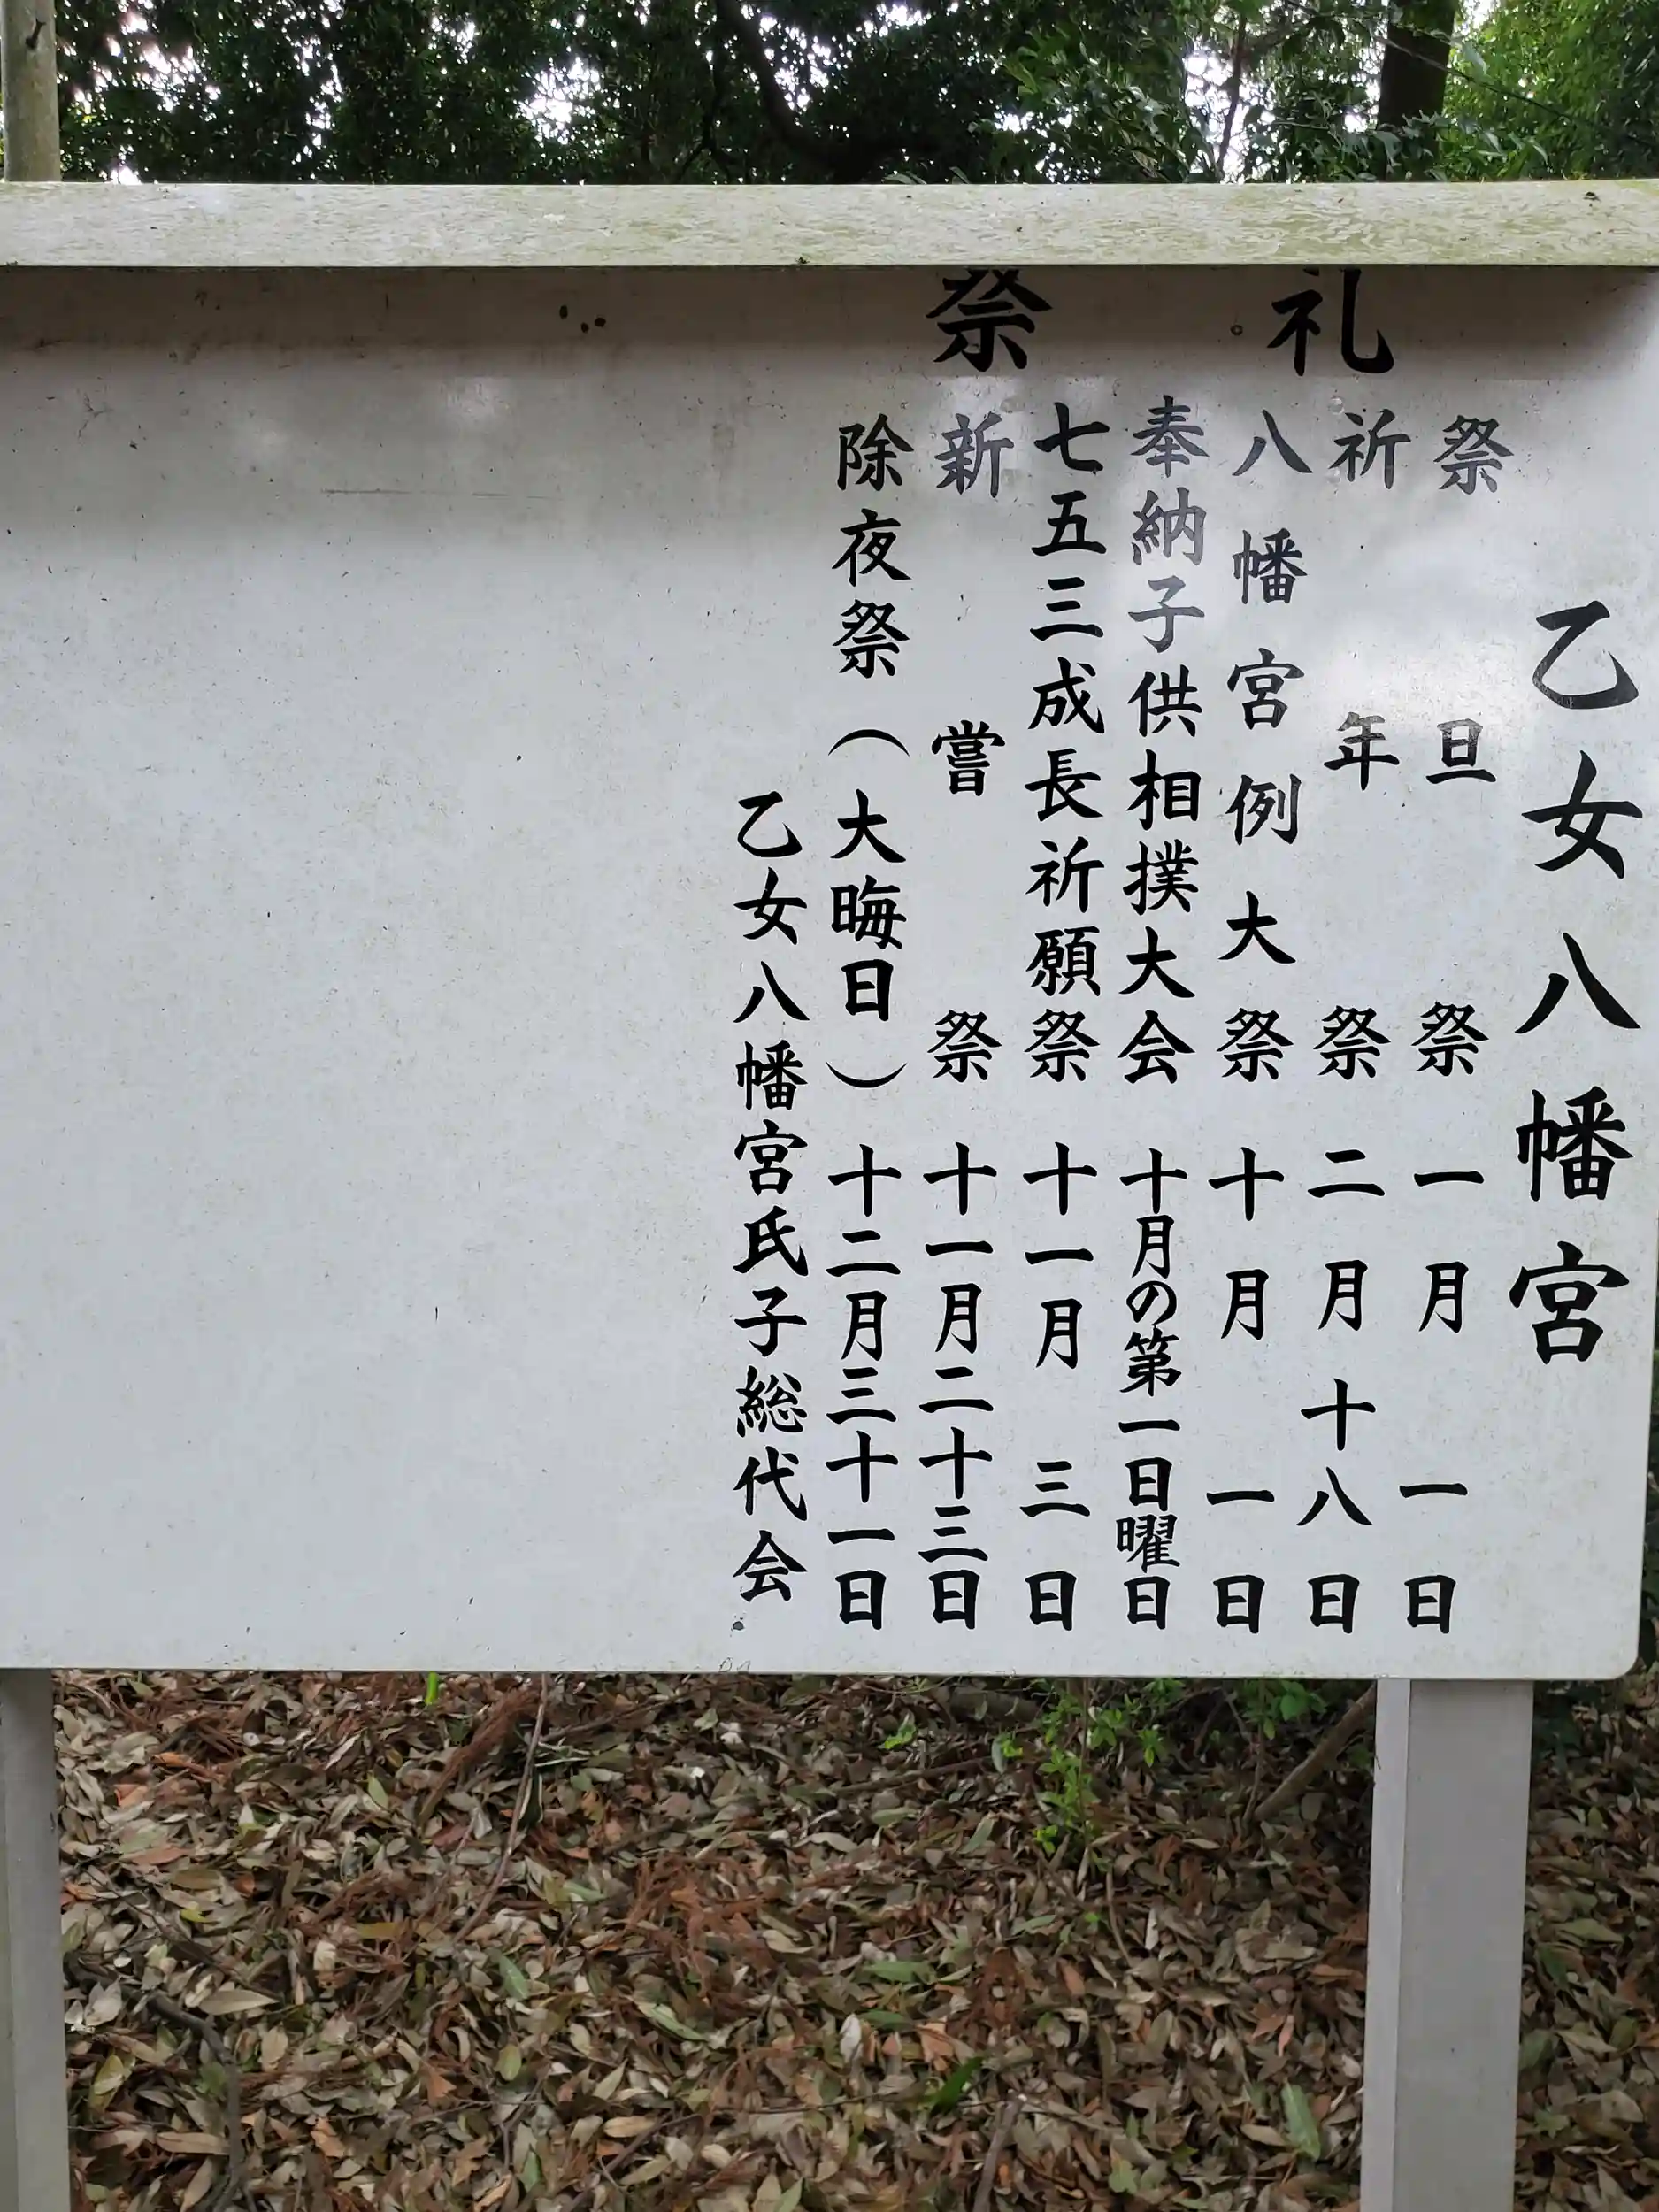 乙女八幡宮
礼祭
祭旦祭 一月一日
祈年祭 二月十八日
八幡宮例大祭 十月一日
奉納子供相撲大会 十月の第一日曜日
七五三成長祈願祭 十一月三日
新嘗祭 十一月二十三日
除夜祭（大晦日） 十二月三十一日
乙女八幡宮氏子総代会